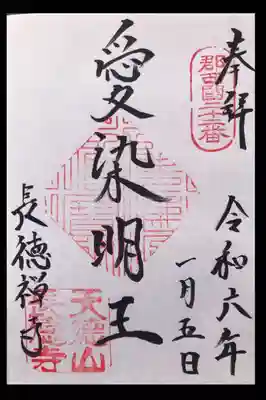 奉拝
令和六年
一月五日
愛染明王
長徳禅寺
天徳山
長徳寺